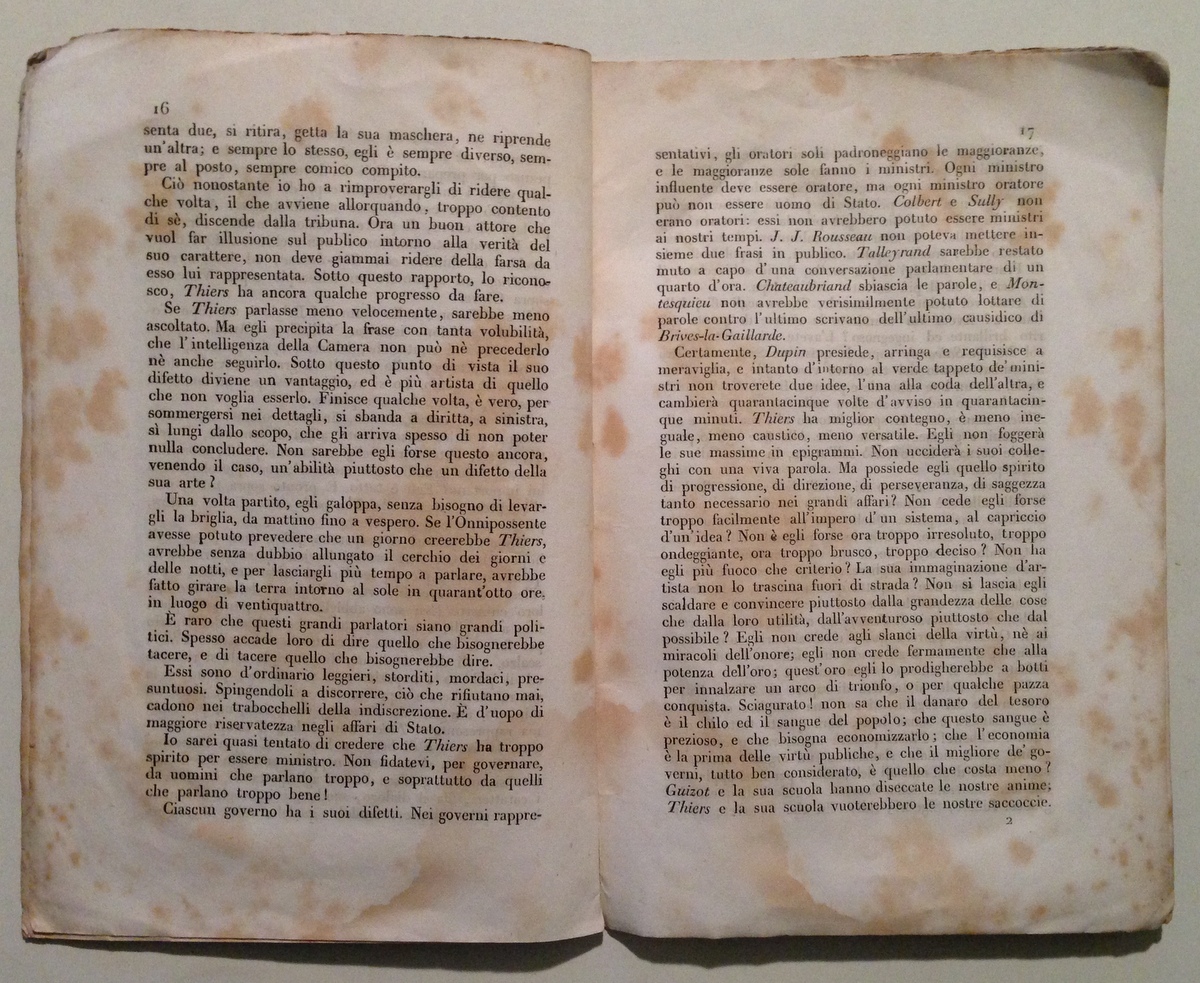 16
senta due, si ritira, getta la sua maschera, ne riprende
un'altra; e sempre lo stesso, egli è sempre diverso, sem-
pre al posto, sempre comico compito.
Ciò nonostante io ho a rimproverargli di ridere qual-
che volta, il che avviene allorquando, troppo contento
di sè, discende dalla tribuna. Ora un buon attore che
vuol far illusione sul publico intorno alla verità del
suo carattere, non deve giammai ridere della farsa da
esso lui rappresentata. Sotto questo rapporto, lo ricono-
sco, Thiers ha ancora qualche progresso da fare.
Se Thiers parlasse meno velocemente, sarebbe meno
ascoltato. Ma egli precipita la frase con tanta volubilità,
che l'intelligenza della Camera non può nè precederlo
nè anche seguirlo. Sotto questo punto di vista il suo
difetto diviene un vantaggio, ed è più artista di quello
che non voglia esserlo. Finisce qualche volta, è vero, per
sommergersi nei dettagli, si sbanda a diritta, a sinistra,
sì lungi dallo scopo, che gli arriva spesso di non poter
nulla concludere. Non sarebbe egli forse questo ancora,
venendo il caso, un'abilità piuttosto che un difetto della
sua arte?
Una volta partito, egli galoppa, senza bisogno di levar-
gli la briglia, da mattino fino a vespero. Se l'Onnipossente
avesse potuto prevedere che un giorno creerebbe Thiers,
avrebbe senza dubbio allungato il cerchio dei giorni e
delle notti, e per lasciargli più tempo a parlare, avrebbe
fatto girare la terra intorno al sole in quarant'otto ore,
in luogo di ventiquattro.
È raro che questi grandi parlatori siano grandi poli-
tici. Spesso accade loro di dire quello che bisognerebbe
tacere, e di tacere quello che bisognerebbe dire.
Essi sono d'ordinario leggieri, storditi, mordaci, pre-
suntuosi. Spingendoli a discorrere, ciò che rifiutano mai,
cadono nei trabocchelli della indiscrezione. È d'uopo di
maggiore riservatezza negli affari di Stato.
Io sarei quasi tentato di credere che Thiers ha troppo
spirito per essere ministro. Non fidatevi, per governare,
da uomini che parlano troppo, e soprattutto da quelli
che parlano troppo bene!
Ciascun governo ha i suoi difetti. Nei governi rappre-
17
sentativi, gli oratori soli padroneggiano le maggioranze,
e le maggioranze sole fanno i ministri. Ogni ministro
influente deve essere oratore, ma ogni ministro oratore
può non essere uomo di Stato. Colbert e Sully non
erano oratori: essi non avrebbero potuto essere ministri
ai nostri tempi. J. J. Rousseau non poteva mettere in-
sieme due frasi in publico. Talleyrand sarebbe restato
muto a capo d'una conversazione parlamentare di un
quarto d'ora. Chateaubriand sbiascia le parole, e Mon-
tesquieu non avrebbe verisimilmente potuto lottare di
parole contro l'ultimo scrivano dell'ultimo causidico di
Brives-la-Gaillarde.
Certamente, Dupin presiede, arringa e requisisce a
meraviglia, e intanto d'intorno al verde tappeto de' mini-
stri non troverete due idee, l'una alla coda dell'altra, e
cambierà quarantacinque volte d'avviso in quarantacin-
que minuti. Thiers ha miglior contegno, è meno ine-
guale, meno caustico, meno versatile. Egli non foggerà
le sue massime in epigrammi. Non ucciderà i suoi colle-
ghi con una viva parola. Ma possiede egli quello spirito
di progressione, di direzione, di perseveranza, di saggezza
tanto necessario nei grandi affari? Non cede egli forse
troppo facilmente all'impero d'un sistema, al capriccio
d'un'idea? Non è egli forse ora troppo irresoluto, troppo
ondeggiante, ora troppo brusco, troppo deciso? Non ha
egli più fuoco che criterio? La sua immaginazione d'ar-
tista non lo trascina fuori di strada? Non si lascia egli
scaldare e convincere piuttosto dalla grandezza delle cose
che dalla loro utilità, dall'avventuroso piuttosto che dal
possibile? Egli non crede agli slanci della virtù, nè ai
miracoli dell'onore; egli non crede fermamente che alla
potenza dell'oro; quest'oro egli lo prodigherebbe a botti
per innalzare un arco di trionfo, o per qualche pazza
conquista. Sciagurato! non sa che il danaro del tesoro
è il chilo ed il sangue del popolo; che questo sangue è
prezioso, e che bisogna economizzarlo; che l'economia
è la prima delle virtù publiche, e che il migliore de' go-
verni, tutto ben considerato, è quello che costa meno?
Guizot e la sua scuola hanno diseccate le nostre anime;
Thiers e la sua scuola vuoterebbero le nostre saccoccie.
2